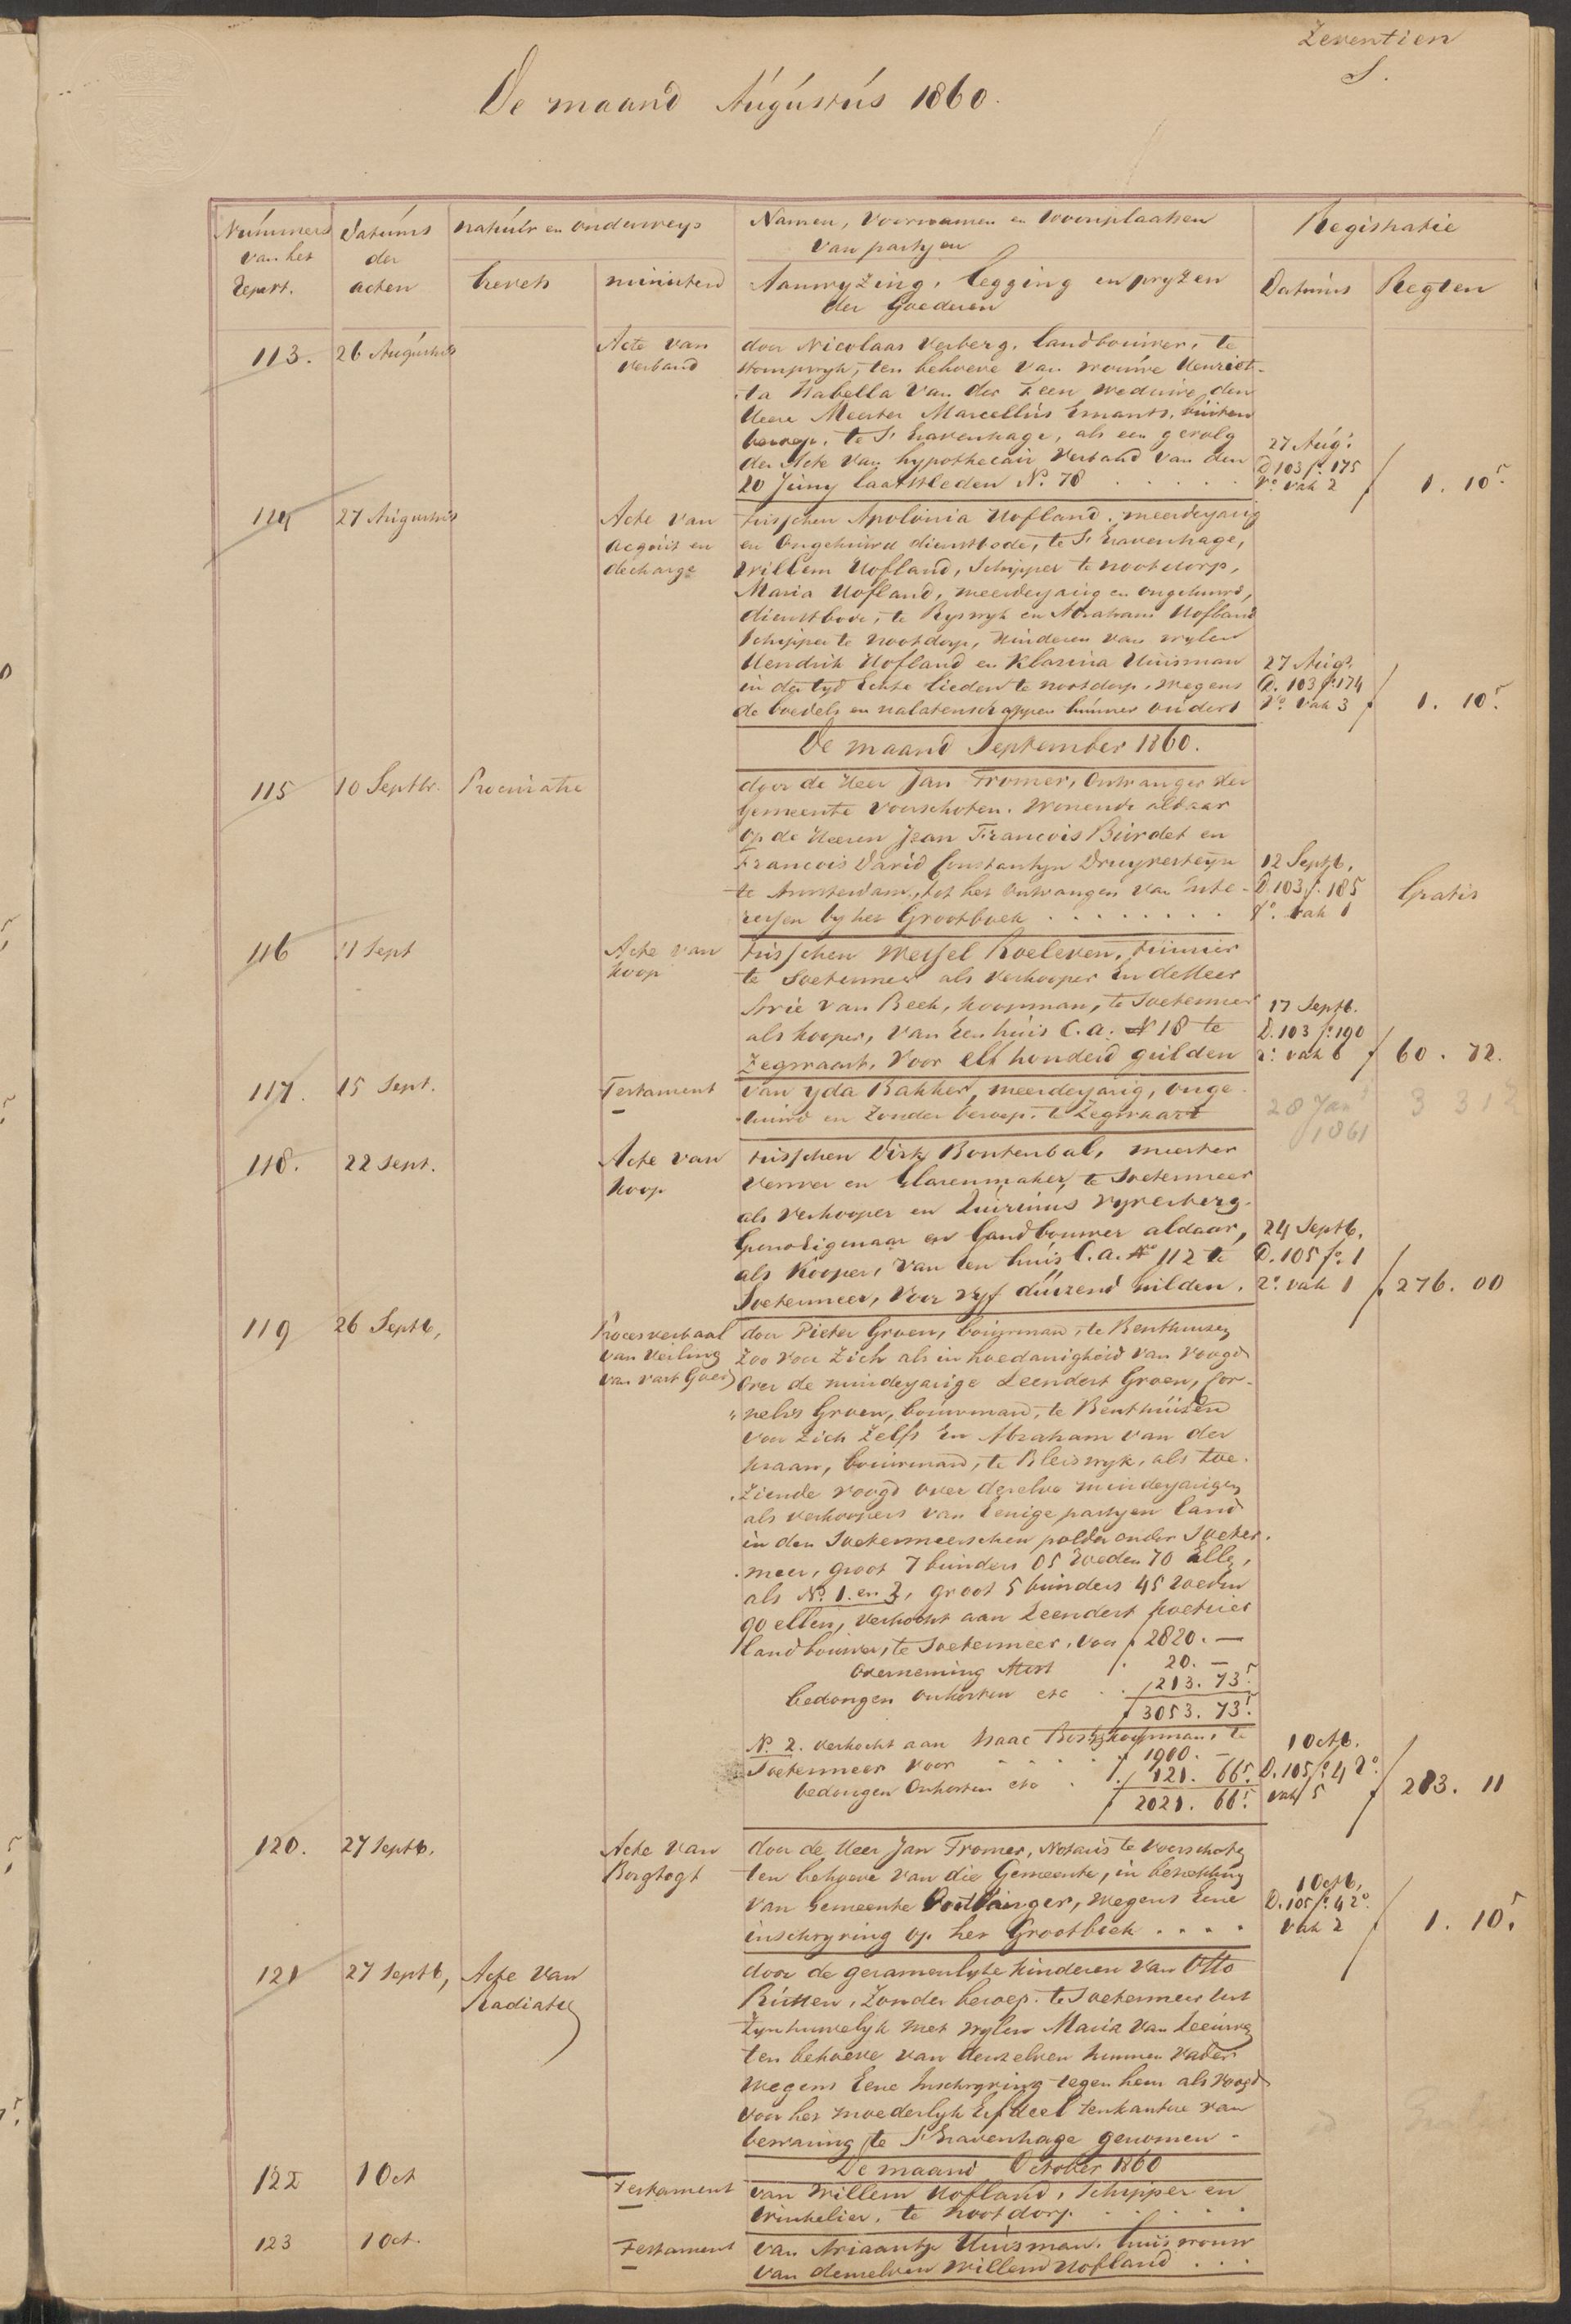 Zeventien
S.
De maand Augustus 1860.
Nummers van het Repert.
Datums der acten
natuur en onderwerp
brevets
minuten
Namen, Voornamen en Woonplaatsen
van partyen
Aanwyzing, legging en pryzen
der Goederen
Registratie
Datums
Regten
113. 26 Augustus
Acte van
verband
door Nicolaas Verberg, landbouwer, te
Stompwyk, ten behoeve van vrouwe Henriet-
ta Isabella van der weduwe den
Heere Meester Marcellus Emants, buiten
beroep, te S' Gravenhage, als een gevolg
der Acte van hypothecair Verband van den
20 Juny laatstleden No. 78 . . . . .
27 Aug.
D 103 fo. 175
vo. vak 2
f 1. 10 5.
114 27 Augustus
Acte van
acquit en
decharge
tusschen Apolonia Hofland, meerderjarig
en Ongehuwd dienstbode, te S' Gravenhage,
Willem Hofland, Schipper te nootdorp,
Maria Hofland, meerderjarig en ongehuwd,
dienstbode, te Ryswyk en Abraham Hofland
Schipper te Nootdorp, kinderen van wylen
Hendrik Hofland en Klasina Huisman
in der tyd Echte lieden te nootdorp, wegens
de boedels en nalatenschappen hunner ouders
27 Augs.
D. 103 fo. 174
vo. vak 3
f 1. 10 5.
De maand September 1860.
115 10 Septbr. Procuratie
door de Heer Jan Fromer, Ontvanger der
Gemeente Voorschoten, wonende aldaar
op de Heeren Jean Francois Burdet en
Francois David Constantyn Druyvesteyn
te Amsterdam, tot het Ontvangen van Inte-
ressen by het Grootboek . . . . . . . .
12 Septb.
D. 103 f. 185
vo. vak 1
Gratis
116 11 Sept
Acte van
koop
tusschen Wessel Roeleven, tuinier
te Soetermeer als Verkooper En de Heer
Arie van Beek, koopman, te Soetermeer
als kooper, van Een huis C. a. No 18 te
Zegwaart, Voor elf honderd gulden
17 Septb.
D. 103 fo. 190
ro. vak 6
f 60. 72.
117. 15 Sept.
Testament
van Yda Bakker, meerderjarig, onge-
huwd en Zonder beroep. te Zegwaart
28 Jan
1861
3 31
118. 22 Sept.
Acte van
Koop
tusschen Dirk Bontenbal, meester
Verwer en Glazenmaker, te Soetermeer
als Verkooper en Quirinus Vyverberg.
Grondeigenaar en Landbouwer aldaar,
als Kooper, Van een huis C. a. No 112 te
Soetermeer, Voor Vyf duizend gulden.
24 Septb.
D. 105 fo. 1
ro. vak 1
f 276. 00
119 26 Septb,
Procesverbaal
van Veiling
van vast Goed
door Pieter Groen, bouwman, te Benthuizen
Zoo voor Zich als in hoedanigheid van Voogd
Over de minderjarige Leendert Groen, Cor-
nelis Groen, bouwman, te Benthuizen
voor Zich Zelfs En Abraham van der
Kraan, bouwman, te Bleiswyk, als toe-
Ziende voogd over dezelve minderjarigen
als verkoopers van Eenige partyen land
in den Soetermeerschen polder onder Soeter-
meer, groot 7 bunders 05 roeden 70 Elle,
als No. 1. en 3, groot 5 bunders 45 roeden
90 ellen, verkocht aan Leendert
landbouwer, te Soetermeer, voor f 2820. —
Overneming Mest f. 20. —
bedongen Onkosten etc . . f 213. 73 5.
f 3053. 73 5.
No. 2. verkocht aan Isaac Bos, koopman, te
Soetermeer voor . . . . f 1900. —
bedongen Onkosten etc . f. 121. 66 5.
f 2021. 66 5.
1 Octb.
D. 105 fo. 4 ro.
vak 5
f 283. 11
120. 27 Septb.
Acte van
Borgtogt
door de Heer Jan Fromer, Notaris te Voorschoten
ten behoeve van die Gemeente, in betrekking
van Gemeente Ontvanger, wegens Eene
inschryving op het Grootboek . . . .
1 Octb.
D. 105 fo. 4 ro.
vak 2
f 1. 10 5.
121 27 Septb, Acte van
Radiatie
door de gezamenlyke kinderen van Otto
Rutten, Zonder beroep. te Soetermeer uit
Zyn huwelyk met wylen Maria van Leeuwen
ten behoeve van denzelven hunnen Vader
wegens Eene Inschryving tegen hem als Voogd
voor het moederlyk Erfdeel tenkantore van
bewaring te S' Gravenhage genomen -
De maand October 1860
122 1 Oct
Testament
van Willem Hofland, Schipper en
Winkelier, te nootdorp . . . . .
123 1 Oct.
Testament
van Ariaantje Huisman, huisvrouw
van denzelven Willem Hofland . . .